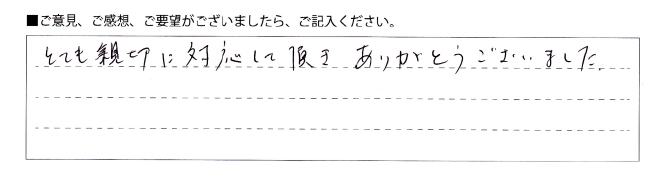 ■ご意見、ご感想、ご要望がございましたら、ご記入ください。
とても親切に対応して頂き ありがとうございました。